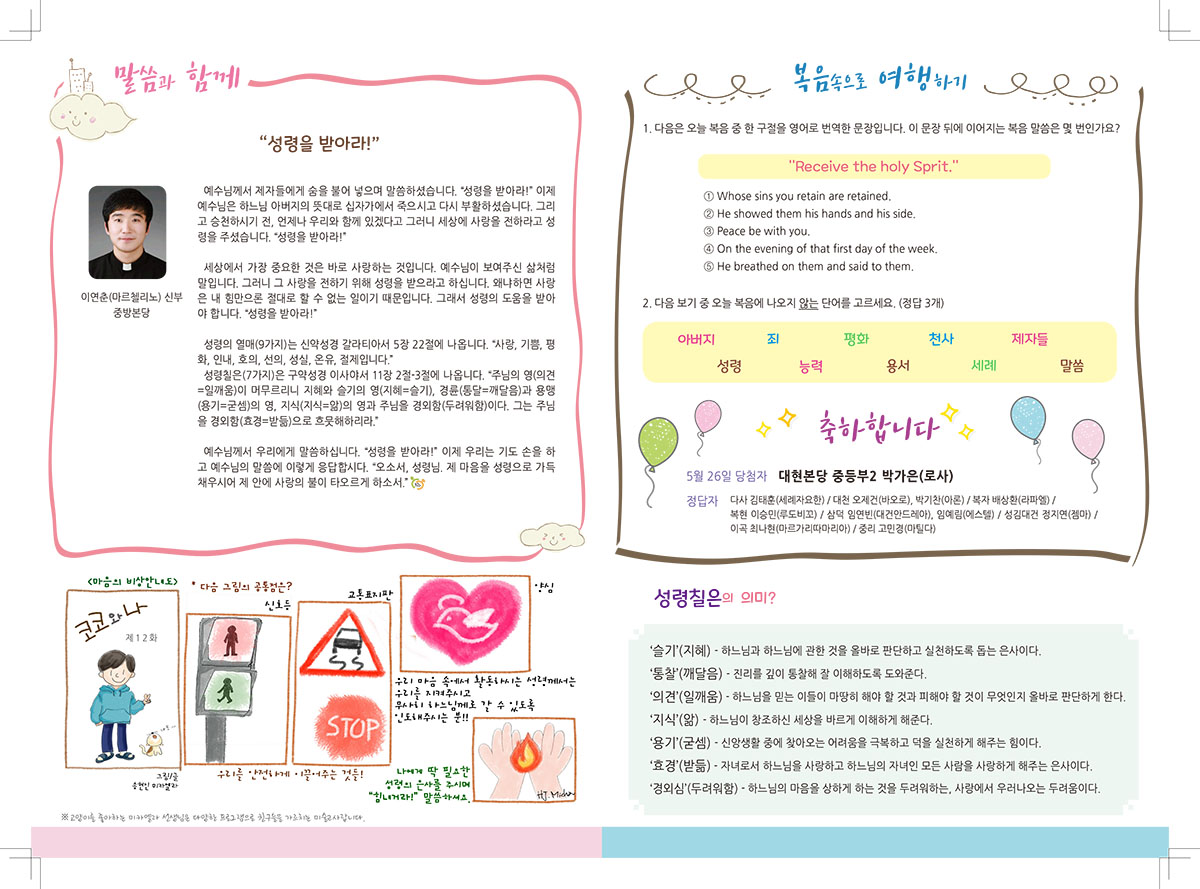 말씀과 함께
“성령을 받아라!”
이연춘(마르첼리노) 신부
중방본당
예수님께서 제자들에게 숨을 불어 넣으며 말씀하셨습니다. “성령을 받아라!” 이제
예수님은 하느님 아버지의 뜻대로 십자가에서 죽으시고 다시 부활하셨습니다. 그리
고 승천하시기 전, 언제나 우리와 함께 있겠다고 그러니 세상에 사랑을 전하라고 성
령을 주셨습니다. “성령을 받아라!”
세상에서 가장 중요한 것은 바로 사랑하는 것입니다. 예수님이 보여주신 삶처럼
말입니다. 그러니 그 사랑을 전하기 위해 성령을 받으라고 하십니다. 왜냐하면 사랑
은 내 힘만으론 절대로 할 수 없는 일이기 때문입니다. 그래서 성령의 도움을 받아
야 합니다. “성령을 받아라!”
성령의 열매(9가지)는 신약성경 갈라티아서 5장 22절에 나옵니다. “사랑, 기쁨, 평
화, 인내, 호의, 선의, 성실, 온유, 절제입니다.”
성령칠은(7가지)은 구약성경 이사야서 11장 2절-3절에 나옵니다. “주님의 영(의견
=일깨움)이 머무르리니 지혜와 슬기의 영(지혜=슬기), 경륜(통달=깨달음)과 용맹
(용기=굳셈)의 영, 지식(지식=앎)의 영과 주님을 경외함(두려워함)이다. 그는 주님
을 경외함(효경=받듦)으로 흐뭇해하리라.”
예수님께서 우리에게 말씀하십니다. “성령을 받아라!” 이제 우리는 기도 손을 하
고 예수님의 말씀에 이렇게 응답합시다. “오소서, 성령님. 제 마음을 성령으로 가득
채우시어 제 안에 사랑의 불이 타오르게 하소서.”
<마음의 비상안내도>
코코와 나
제12화
그림/글
* 다음 그림의 공통점은?
신호등
교통표지판
STOP
우리를 안전하게 이끌어주는 것들!
양심
우리 마음 속에서 활동하시는 성령께서는
우리를 지켜주시고
무사히 하느님께로 갈 수 있도록
인도해주시는 분!!
나에게 딱 필요한
성령의 은사를 주시며
“힘내거라!” 말씀하셔요.
※고양이를 좋아하는 미카엘라 선생님은 다양한 프로그램으로 친구들을 가르치는 미술교사랍니다.
복음속으로 여행하기
1. 다음은 오늘 복음 중 한 구절을 영어로 번역한 문장입니다. 이 문장 뒤에 이어지는 복음 말씀은 몇 번인가요?
"Receive the holy Sprit."
① Whose sins you retain are retained.
② He showed them his hands and his side.
③ Peace be with you.
④ On the evening of that first day of the week.
⑤ He breathed on them and said to them.
2. 다음 보기 중 오늘 복음에 나오지 않는 단어를 고르세요. (정답 3개)
아버지 죄 평화 천사 제자들
성령 능력 용서 세례 말씀
축하합니다
5월 26일 당첨자 대현본당 중등부2 박가은(로사)
정답자 다사 김태훈(세례자요한) / 대천 오제건(바오로), 박기찬(아론) / 복자 배상환(라파엘) /
복현 이승민(루도비꼬) / 삼덕 임연빈(대건안드레아), 임예림(에스텔) / 성김대건 정지연(젬마) /
이곡 최나현(마르가리따마리아) / 중리 고민경(마틸다)
성령칠은의 의미?
‘슬기’(지혜) - 하느님과 하느님에 관한 것을 올바로 판단하고 실천하도록 돕는 은사이다.
‘통찰’(깨달음) - 진리를 깊이 통찰해 잘 이해하도록 도와준다.
‘의견’(일깨움) - 하느님을 믿는 이들이 마땅히 해야 할 것과 피해야 할 것이 무엇인지 올바로 판단하게 한다.
‘지식’(앎) - 하느님이 창조하신 세상을 바르게 이해하게 해준다.
‘용기’(굳셈) - 신앙생활 중에 찾아오는 어려움을 극복하고 덕을 실천하게 해주는 힘이다.
‘효경’(받듦) - 자녀로서 하느님을 사랑하고 하느님의 자녀인 모든 사람을 사랑하게 해주는 은사이다.
‘경외심’(두려워함) - 하느님의 마음을 상하게 하는 것을 두려워하는, 사랑에서 우러나오는 두려움이다.